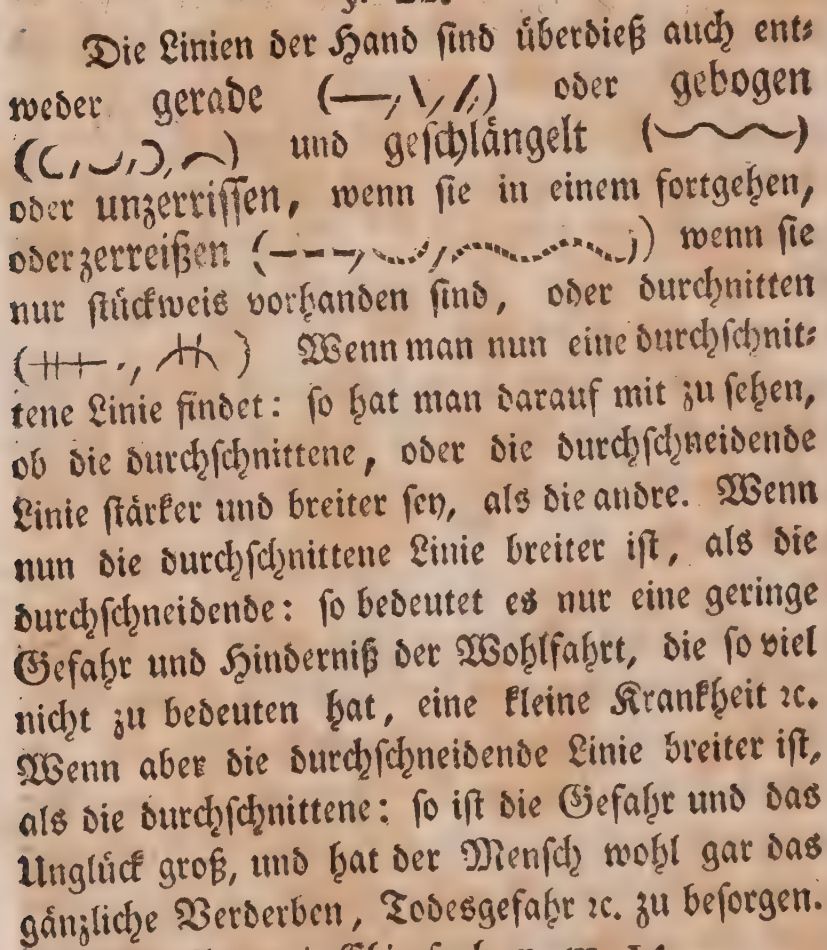 Die Linien der Hand ſind überdieß auch ent⸗
weder gerade (—,\,/,) oder gebogen
((,◡,),⌒) und geſchlängelt (~~)
oder unzerriſſen, wenn ſie in einem fortgehen,
oder zerreißen (---, ) wenn ſie
nur ſtückweis vorhanden ſind, oder durchnitten
( ., ) Wenn man nun eine durchſchnit⸗
tene Linie findet: ſo hat man darauf mit zu ſehen,
ob die durchſchnittene, oder die durchſchneidende
Linie ſtärker und breiter ſey, als die andre. Wenn
nun die durchſchnittene Linie breiter iſt, als die
durchſchneidende: ſo bedeutet es nur eine geringe
Gefahr und Hinderniß der Wohlfahrt, die ſo viel
nicht zu bedeuten hat, eine kleine Krankheit ꝛc.
Wenn aber die durchſchneidende Linie breiter iſt,
als die durchſchnittene: ſo iſt die Gefahr und das
Unglück groß, und hat der Menſch wohl gar das
gänzliche Verderben, Todesgefahr ꝛc. zu beſorgen.